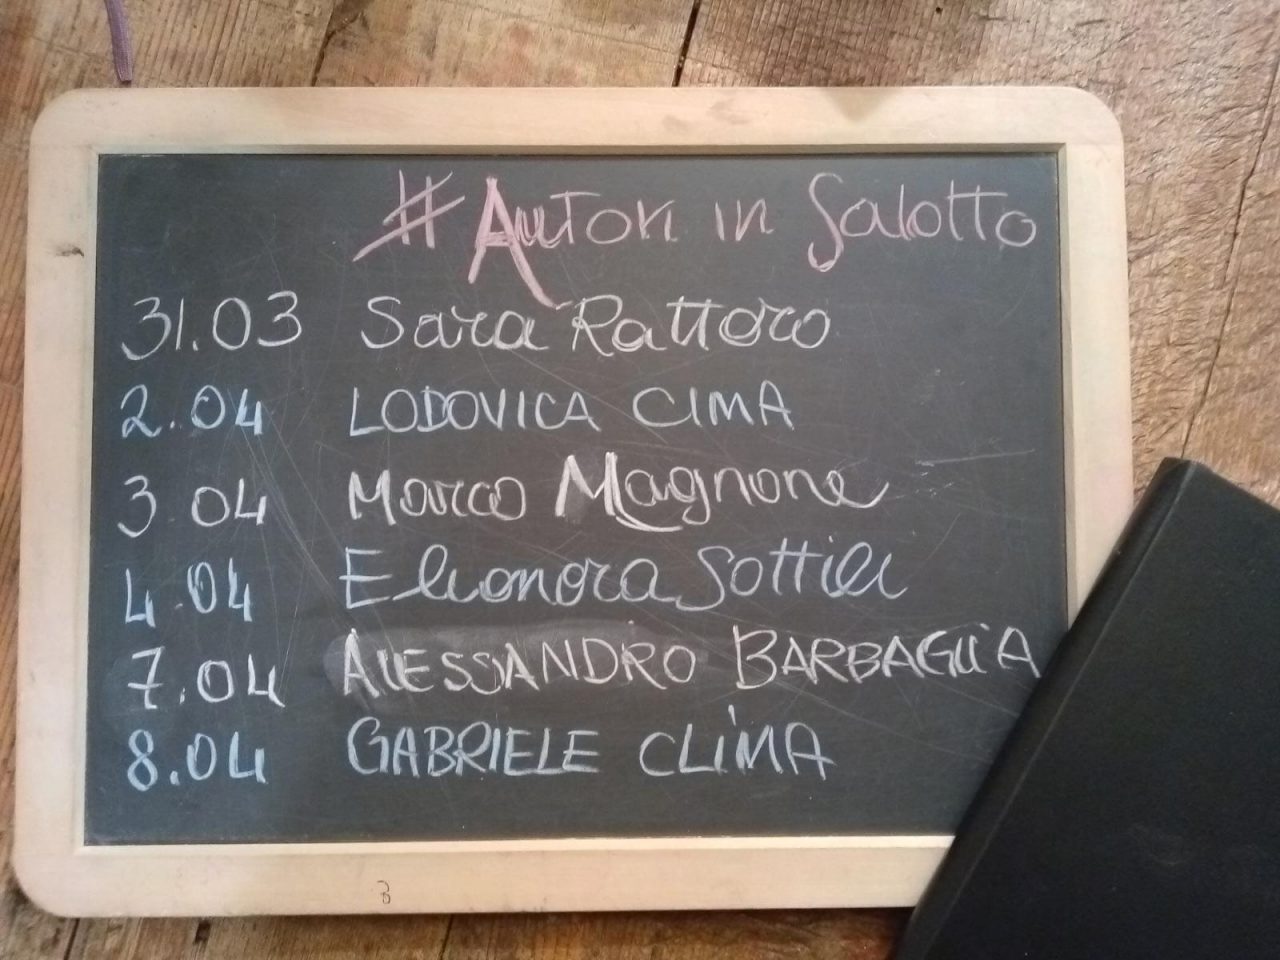 #Autori in Salotto
31.03 Sara Rattaro
2.04 LODOVICA CIMA
3.04 Marco Magnone
4.04 Eleonora Sottili
7.04 ALESSANDRO BARBAGLIA
8.04 GABRIELE CLIMA